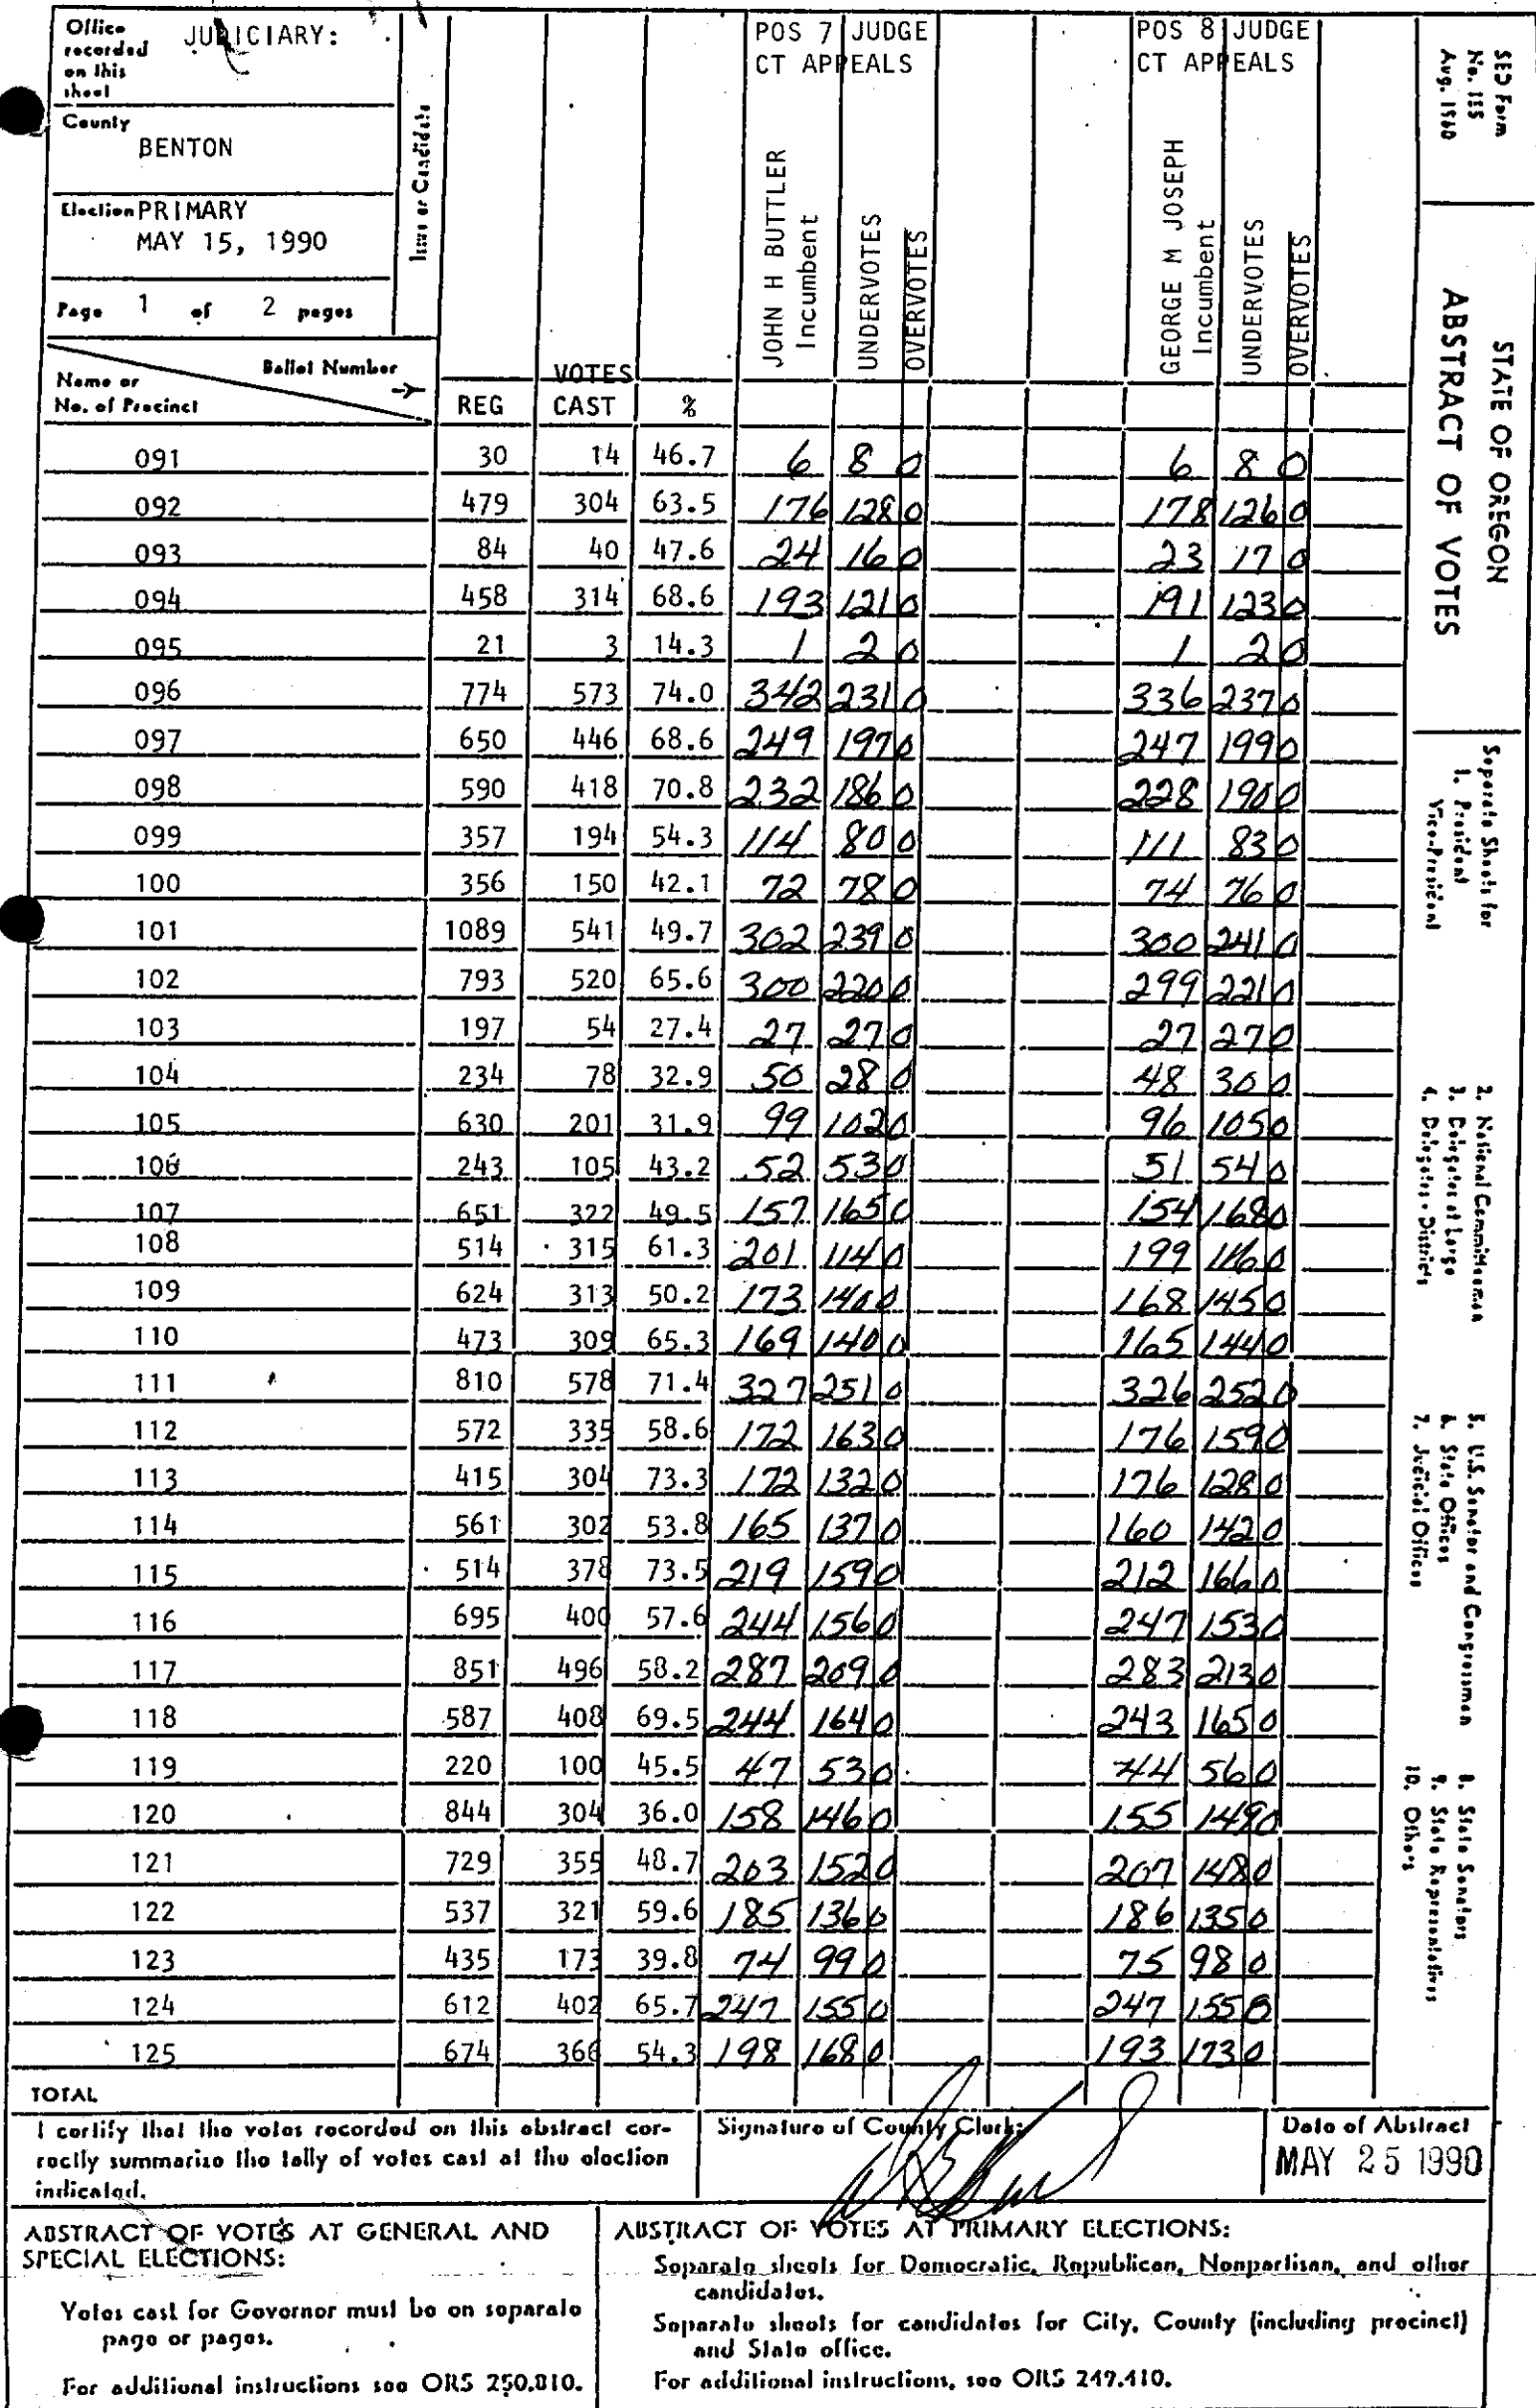 Office recorded on this sheet JUDICIARY:
County
BENTON
Election PRIMARY
MAY 15, 1990
Page 1 of 2 pages
Issue or Candidate
POS 7 JUDGE
CT APPEALS
JOHN H BUTTLER
Incumbent
UNDERVOTES
OVERVOTES
POS 8 JUDGE
CT APPEALS
GEORGE M JOSEPH
Incumbent
UNDERVOTES
OVERVOTES
Ballot Number
Name or
No. of Precinct
REG VOTES CAST %
091 30 14 46.7 6 8 0 6 8 0
092 479 304 63.5 176 128 0 178 126 0
093 84 40 47.6 24 16 0 23 17 0
094 458 314 68.6 193 121 0 191 123 0
095 21 3 14.3 1 2 0 1 2 0
096 774 573 74.0 342 231 0 336 237 0
097 650 446 68.6 249 197 0 247 199 0
098 590 418 70.8 232 186 0 228 190 0
099 357 194 54.3 114 80 0 111 83 0
100 356 150 42.1 72 78 0 74 76 0
101 1089 541 49.7 302 239 0 300 241 0
102 793 520 65.6 300 220 0 299 221 0
103 197 54 27.4 27 27 0 27 27 0
104 234 78 32.9 50 28 0 48 30 0
105 630 201 31.9 99 102 0 96 105 0
106 243 105 43.2 52 53 0 51 54 0
107 651 322 49.5 157 165 0 154 168 0
108 514 315 61.3 201 114 0 199 116 0
109 624 313 50.2 173 140 0 168 145 0
110 473 309 65.3 169 140 0 165 144 0
111 810 578 71.4 327 251 0 326 252 0
112 572 335 58.6 172 163 0 176 159 0
113 415 304 73.3 172 132 0 176 128 0
114 561 302 53.8 165 137 0 160 142 0
115 514 378 73.5 219 159 0 212 166 0
116 695 400 57.6 244 156 0 247 153 0
117 851 496 58.2 287 209 0 283 213 0
118 587 408 69.5 244 164 0 243 165 0
119 220 100 45.5 47 53 0 44 56 0
120 844 304 36.0 158 146 0 155 149 0
121 729 355 48.7 203 152 0 207 148 0
122 537 321 59.6 185 136 0 186 135 0
123 435 173 39.8 74 99 0 75 98 0
124 612 402 65.7 247 155 0 247 155 0
125 674 366 54.3 198 168 0 193 173 0
TOTAL
I certify that the votes recorded on this abstract cor-
rectly summarize the tally of votes cast at the election
indicated.
Signature of County Clerk:
Date of Abstract
MAY 25 1990
ABSTRACT OF VOTES AT GENERAL AND
SPECIAL ELECTIONS:
Votes cast for Governor must be on separate
page or pages.
For additional instructions see ORS 250.810.
ABSTRACT OF VOTES AT PRIMARY ELECTIONS:
Separate sheets for Democratic, Republican, Nonpartisan, and other
candidates.
Separate sheets for candidates for City, County (including precinct)
and State office.
For additional instructions, see ORS 249.410.
SED Form
No. 115
Aug. 1940
STATE OF OREGON
ABSTRACT OF VOTES
Separate Sheets for
1. President
Vice-President
2. National Committeeman
3. Delegates at Large
4. Delegates - Districts
5. U.S. Senator and Congressman
6. State Offices
7. Judicial Offices
8. State Senators
9. State Representatives
10. Others